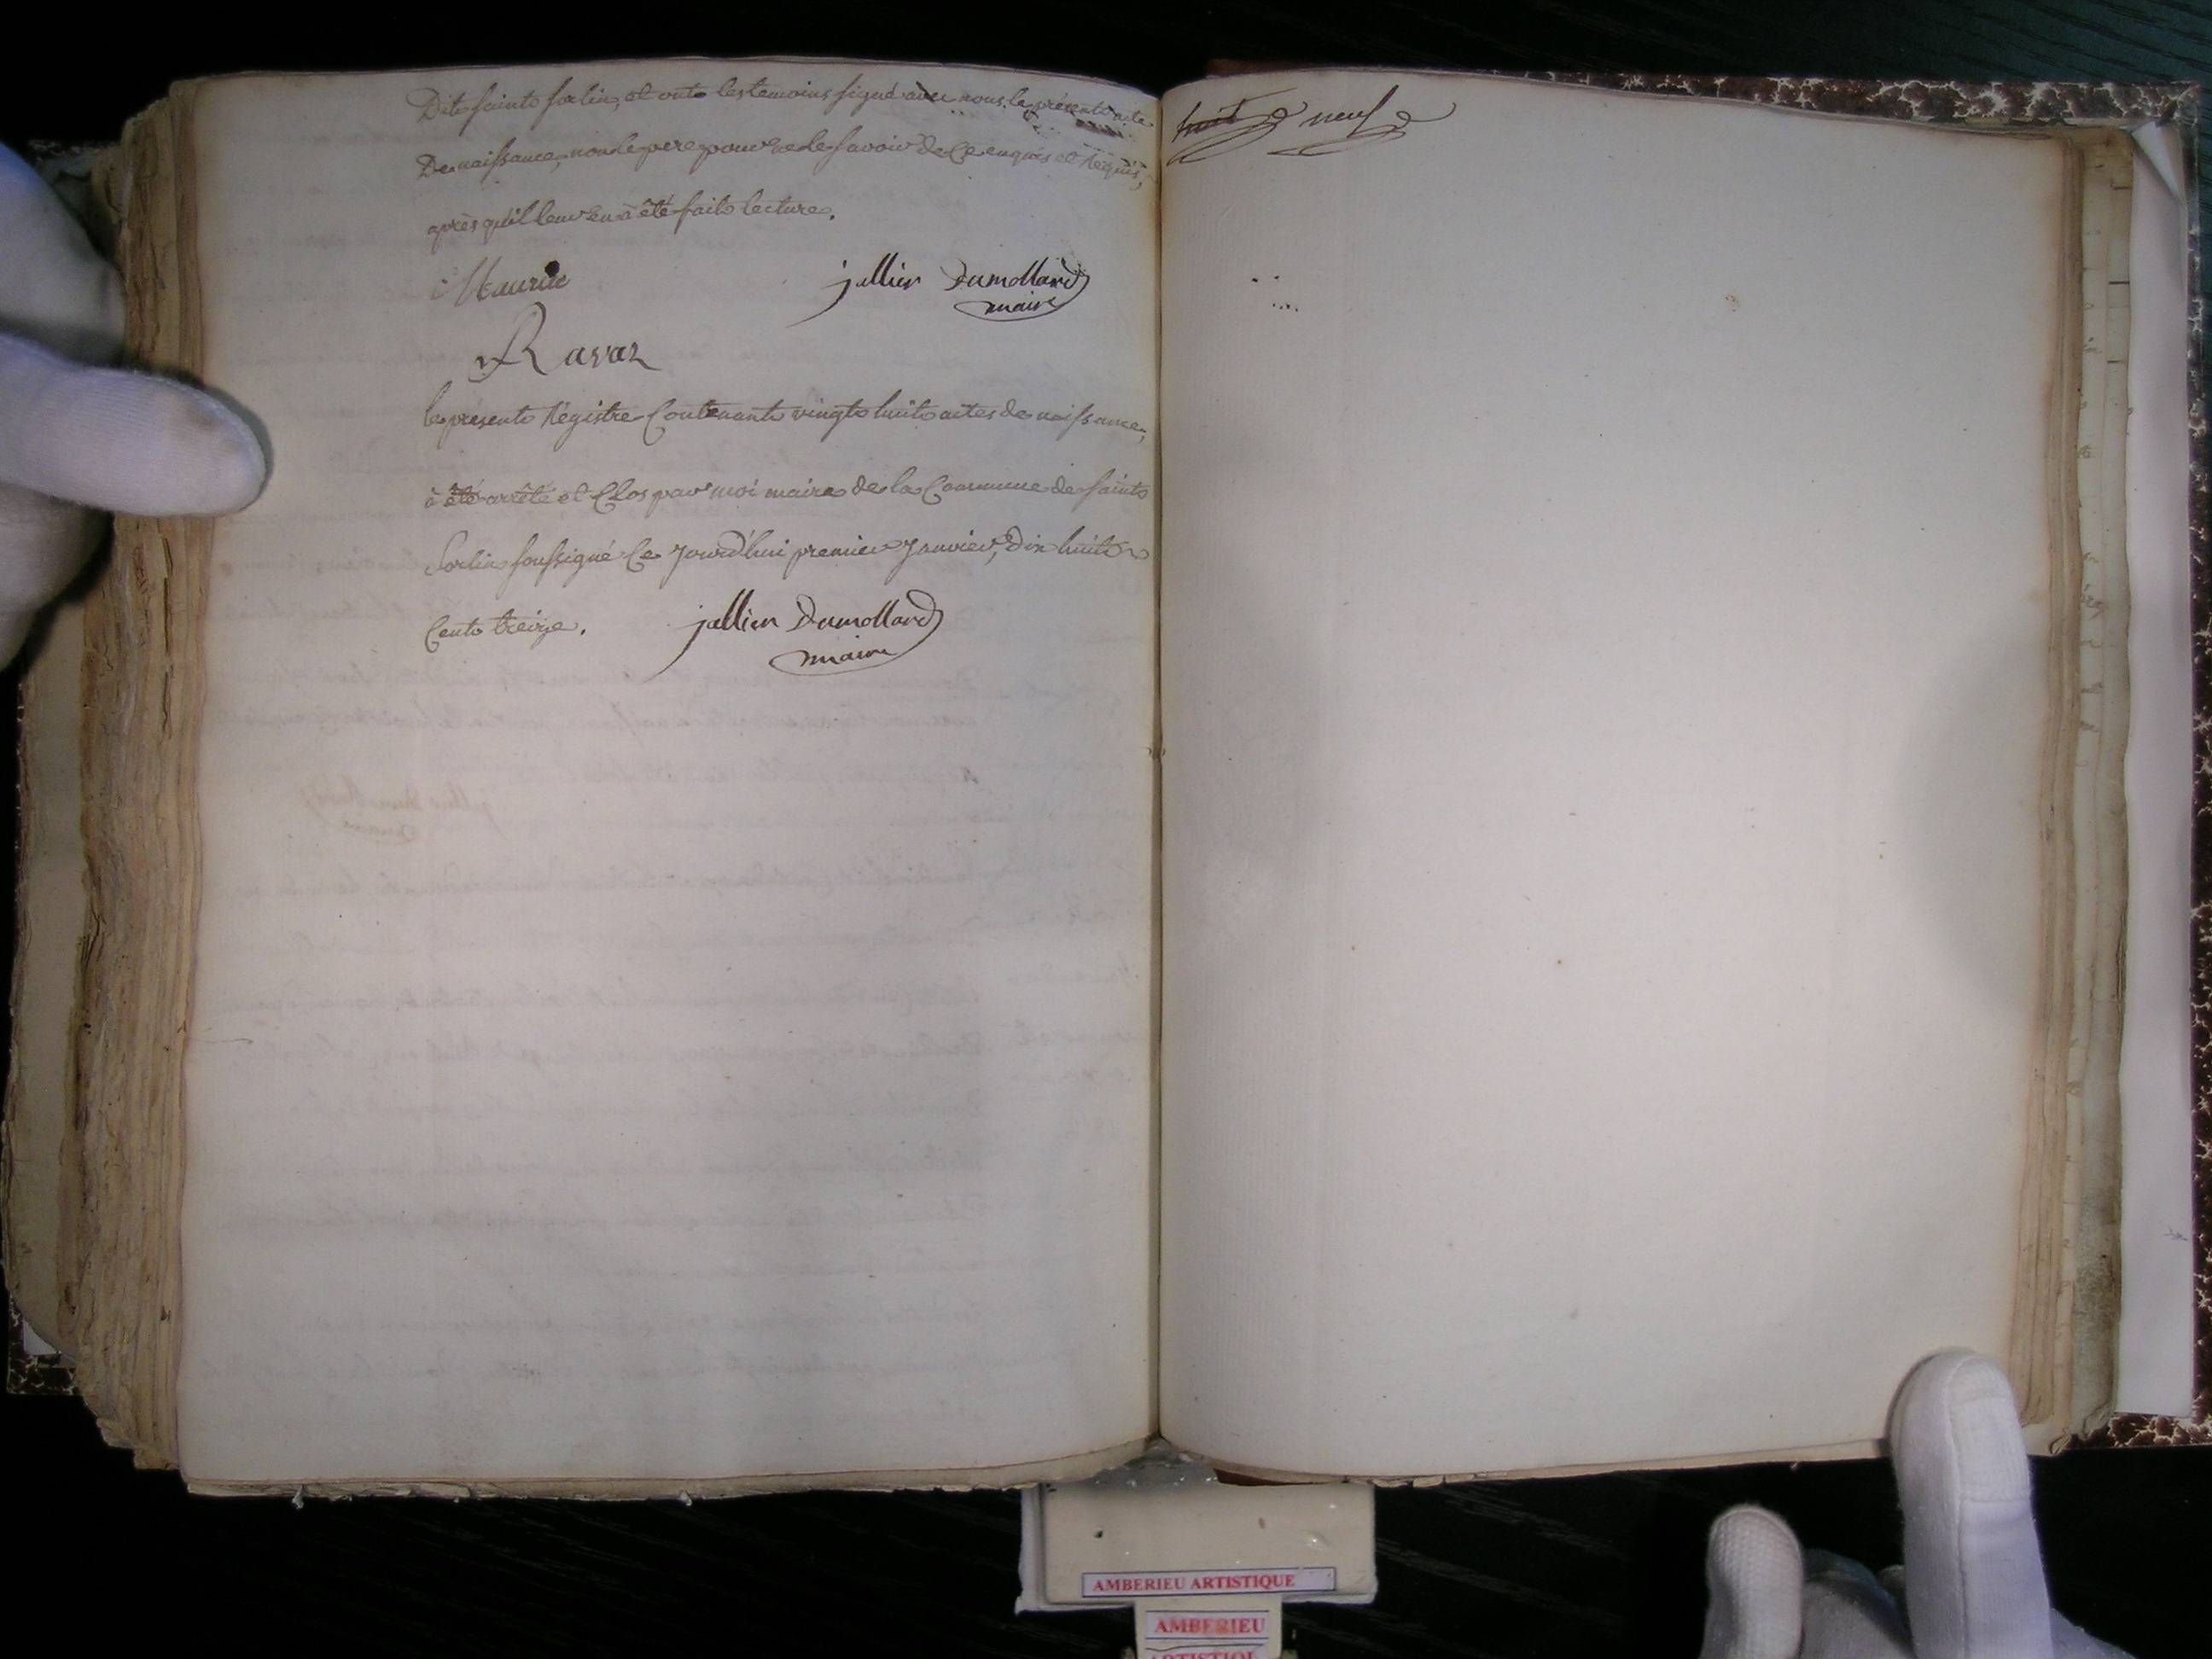 Dite saint sorlin, et ont les temoins signé avec nous le présent acte
De naissance, non le pere pour ne le savoir de Ce enquis et Requis,
après qu'il leur en à été fait lecture.
Maurice
jullien Dumollard
maire
Ravaz
le présent Régistre Contenant vingt huit actes de naissance,
à été arrêté et Clos par moi maire de la Commune de saint
Sorlin soussigné Ce jourd'hui premier Janvier, dix huit
Cent treize.
jullien Dumollard
maire
huit neuf
AMBERIEU ARTISTIQUE
AMBERIEU
ARTISTIQUE